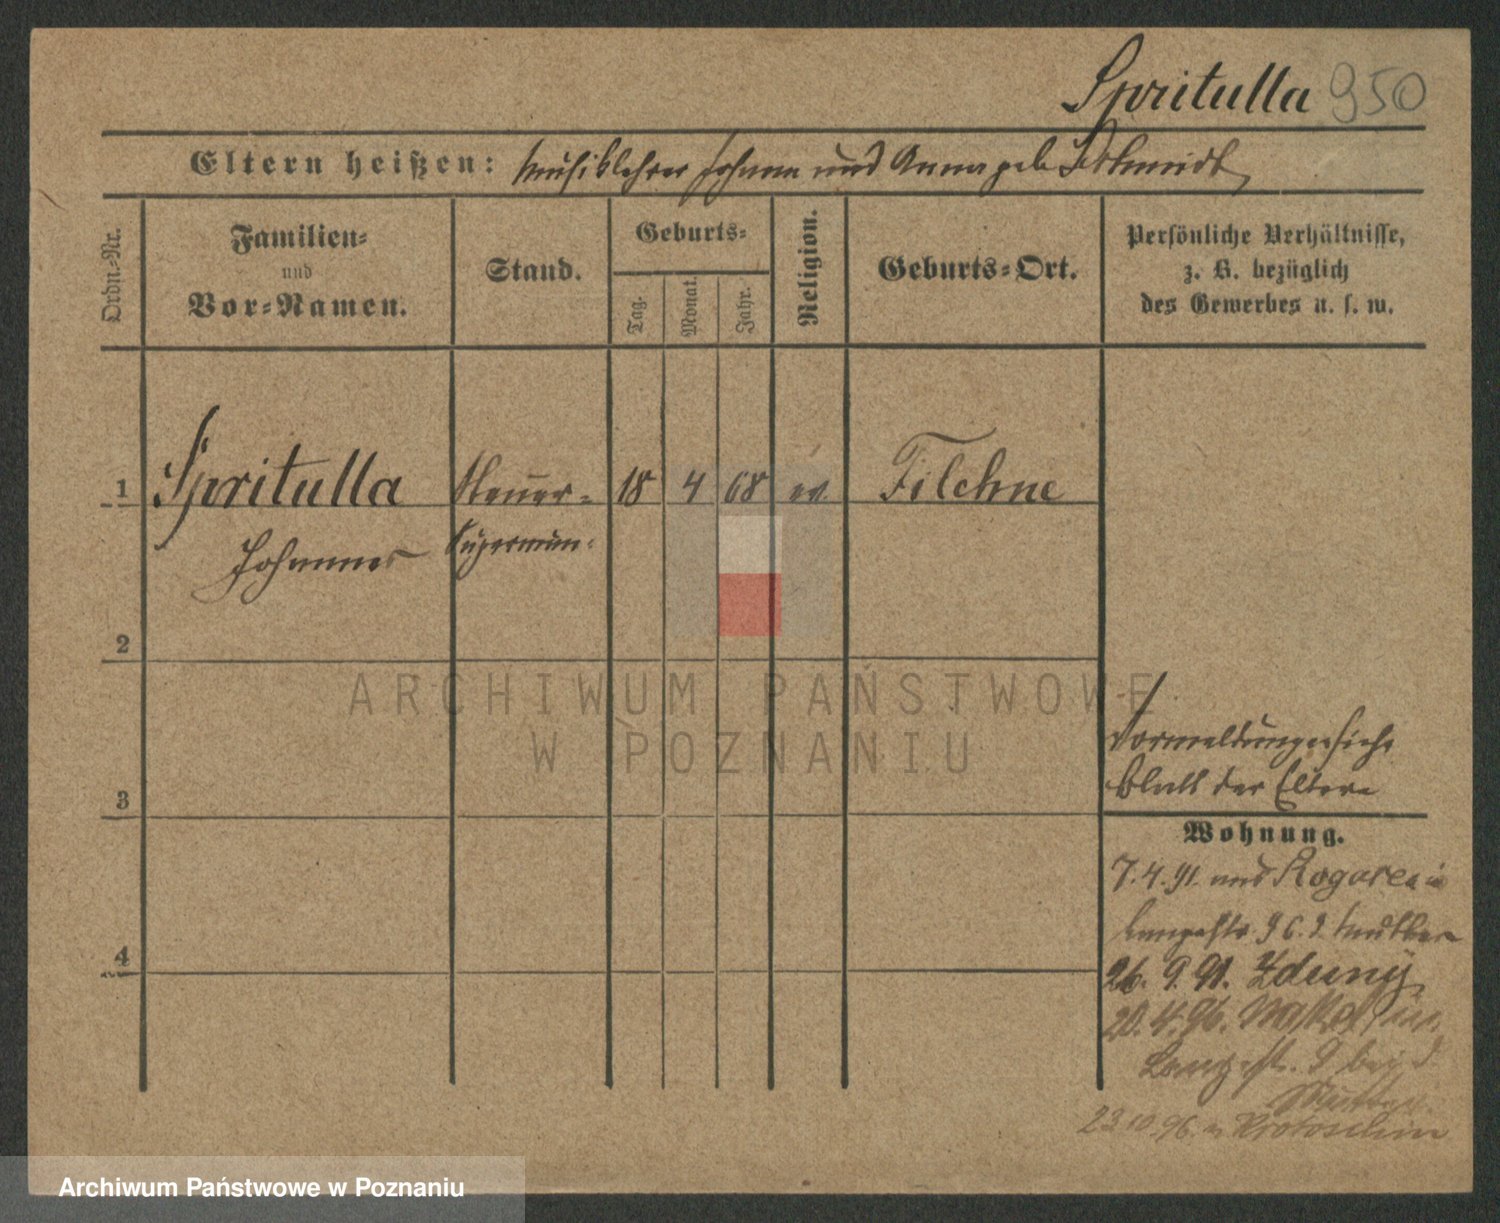 Spritulla 950
Eltern heißen: Musiklehrer Johann und Anna geb Schmidt
Ordn.-Nr.
Familien-
und
Vor-Namen.
Stand.
Geburts-
Tag.
Monat.
Jahr.
Religion.
Geburts-Ort.
Persönliche Verhältnisse,
z. B. bezüglich
des Gewerbes u. s. w.
1 Spritulla Steuer- 18 4 68 ev. Filehne
Johannes Supernum:
2
3
4
ARCHIWUM PAŃSTWOWE
W POZNANIU
blatt der Eltern
Wohnung.
7.4.91. aus
Langestr. 9 Mutter
26. 9. 91. Zduny
20. 4. 96.
Langestr. 9 bei d.
Mutter
23.10.96. n Krotoschin
Archiwum Państwowe w Poznaniu